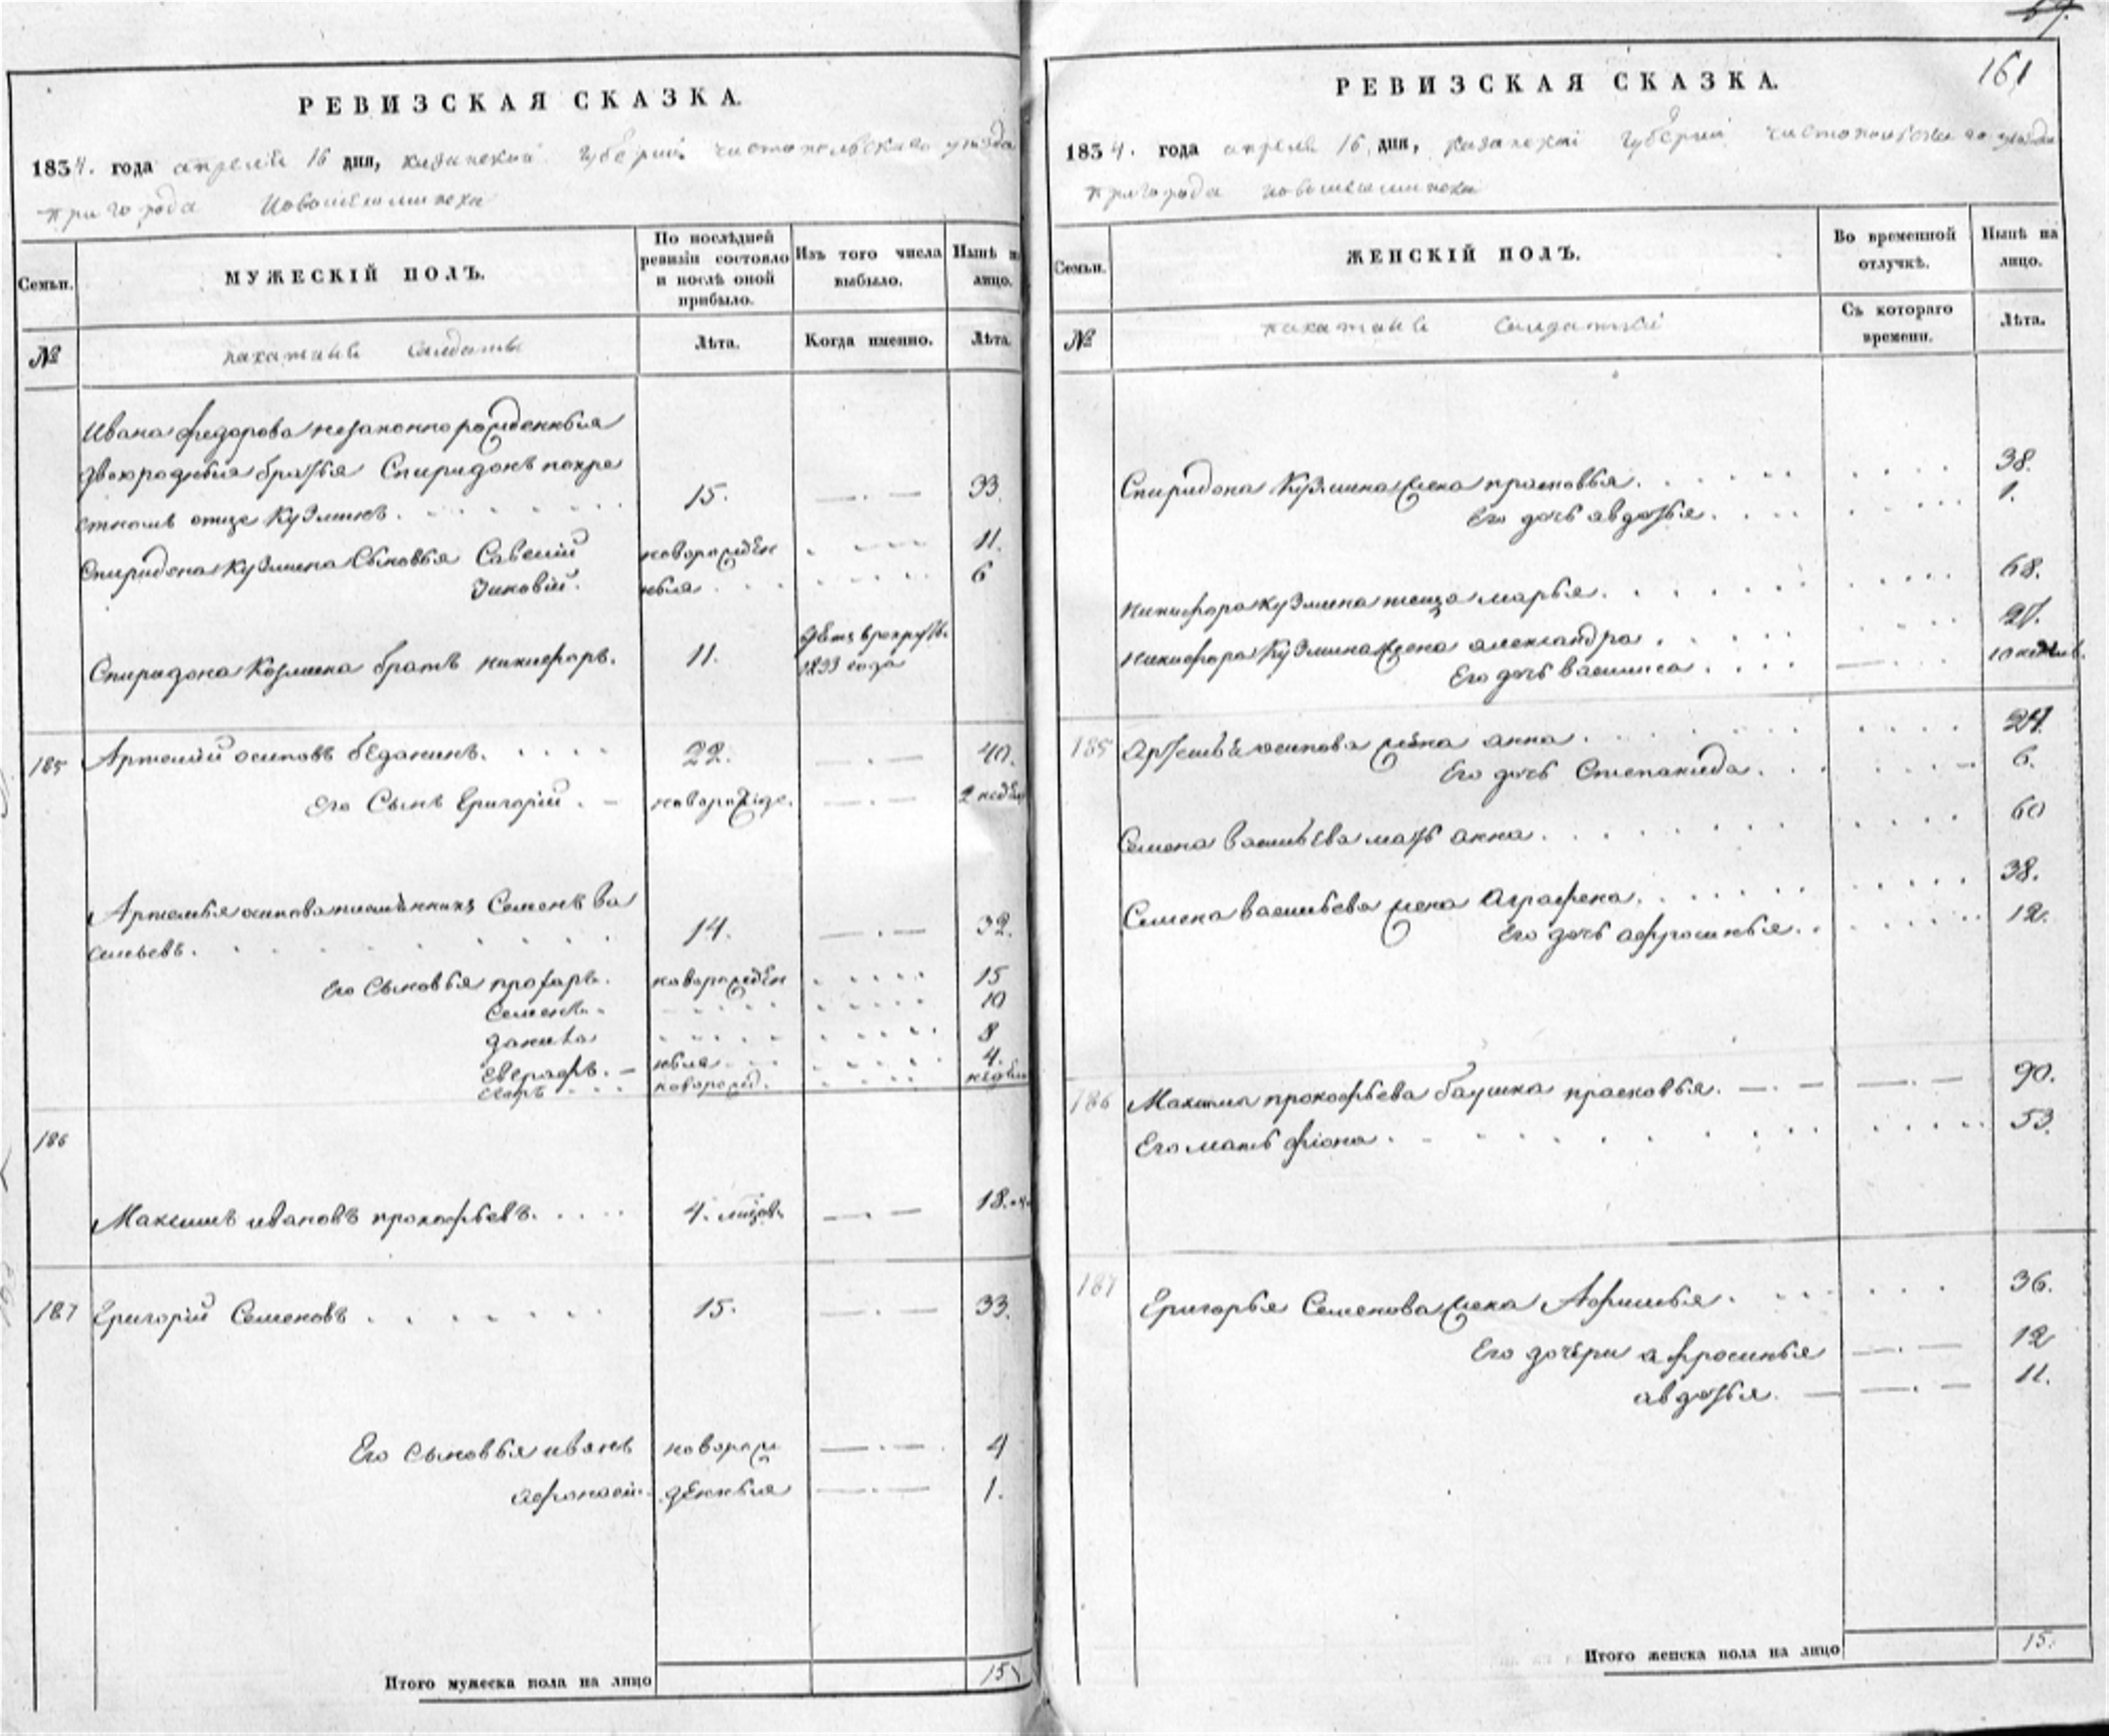 161
РЕВИЗСКАЯ СКАЗКА.
1834. года апреля 16 дня, казанской губернии чистопольскаго уезда
пригорода Новошешминска
Семьи.
МУЖЕСКІЙ ПОЛЪ.
По послѣдней ревизіи состояло и послѣ оной прибыло.
Изъ того числа выбыло.
Нынѣ на лицо.
№
пахатные Солдаты
Лѣта.
Когда именно.
Лѣта.
Ивана федорова незаконнорожденныя
двоюродныя братья Спиридонъ по кре
стномъ отце Кузминъ. 15. 33.
Спиридона Кузмина Сыновья Савелий новорожден 11.
Зиновий. ныя 6
Спиридона Козмина братъ никифоръ. 11. 1833 года
185 Артемий осиповъ беданинъ. 22. 40.
Его Сынъ Григорий. новорожде. 2 недел
Артемья осипова племянникъ Семенъ Ва
сильевъ. 14. 32.
Его Сыновья прохоръ. новорожден 15
Семенъ. 10
данила 8
Евграфъ. ныя 4.
новорожд. недели
186
Максимъ ивановъ прокофьевъ. 4. 18.
187 Григорий Семеновъ 15. 33.
Его Сыновья иванъ новорож 4
афанасий. денныя 1.
Итого мужеска пола на лицо 15
РЕВИЗСКАЯ СКАЗКА.
1834. года апреля 16 дня, казанской губернии чистопольскаго уезда
пригорода новошешминска
Семьи.
ЖЕНСКІЙ ПОЛЪ.
Во временной отлучкѣ.
Нынѣ на лицо.
№
пахатные Солдатки
Съ котораго времени.
Лѣта.
Спиридона Кузмина жена прасковья. 38.
Его дочь авдотья. 1.
никифора кузмина теща марья. 68.
никифора Кузмина жена александра. 21.
Его дочь василиса. 10 недель.
185 Артемья осипова жена анна. 24.
Его дочь Степанида. 6.
Семена васильева мать анна. 60
Семена васильева жена Аграфена. 38.
Его дочь афросинья. 12.
186 Максима прокофьева баушка прасковья. 90.
Его мать фiона. 53.
187 Григорья Семенова жена Афимья. 36.
Его дочери афросинья 12
авдотья. 11.
Итого женска пола на лицо 15.